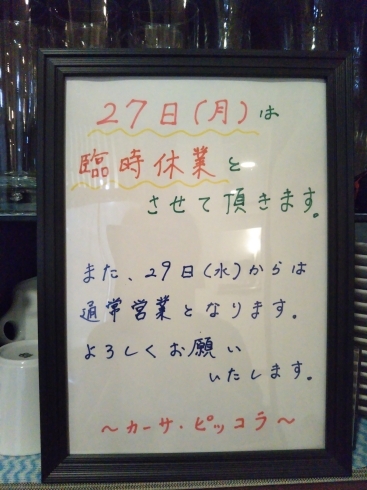 27日(月)は
臨時休業と
させて頂きます。
また、29日(水)からは
通常営業となります。
よろしくお願い
いたします。
～カーサ・ピッコラ～